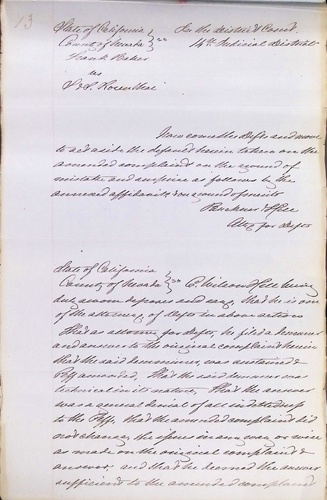 13
State of California } In the District Court
County of Nevada } ss 14th Judicial District
Frank Baker
vs
J & S. Rosenthal
Now comes the Defts and move
to set aside the default herein taken on the
amended complaint on the ground of
mistake and surprise as follows by the
annexed affidavit & on ground of merits
& Hill
Atty for Defts
State of California
County of Nevada } ss C. Wilson Hill being
duly sworn deposes and says, that he is one
of the attorneys of Defts in above action
That as attorney for Defts, he filed a demurrer
and answer to the original complaint herein
that the said demurrer was sustained &
Plff amended. That the said demurrer was
technical in its nature, That the answer
was a general denial of an indebtedness
to the Plff, that the amended complaint did
not change the issues in any way or wise
as made on the original complaint &
answer, and that he deemed the answer
sufficient to the amended complaint